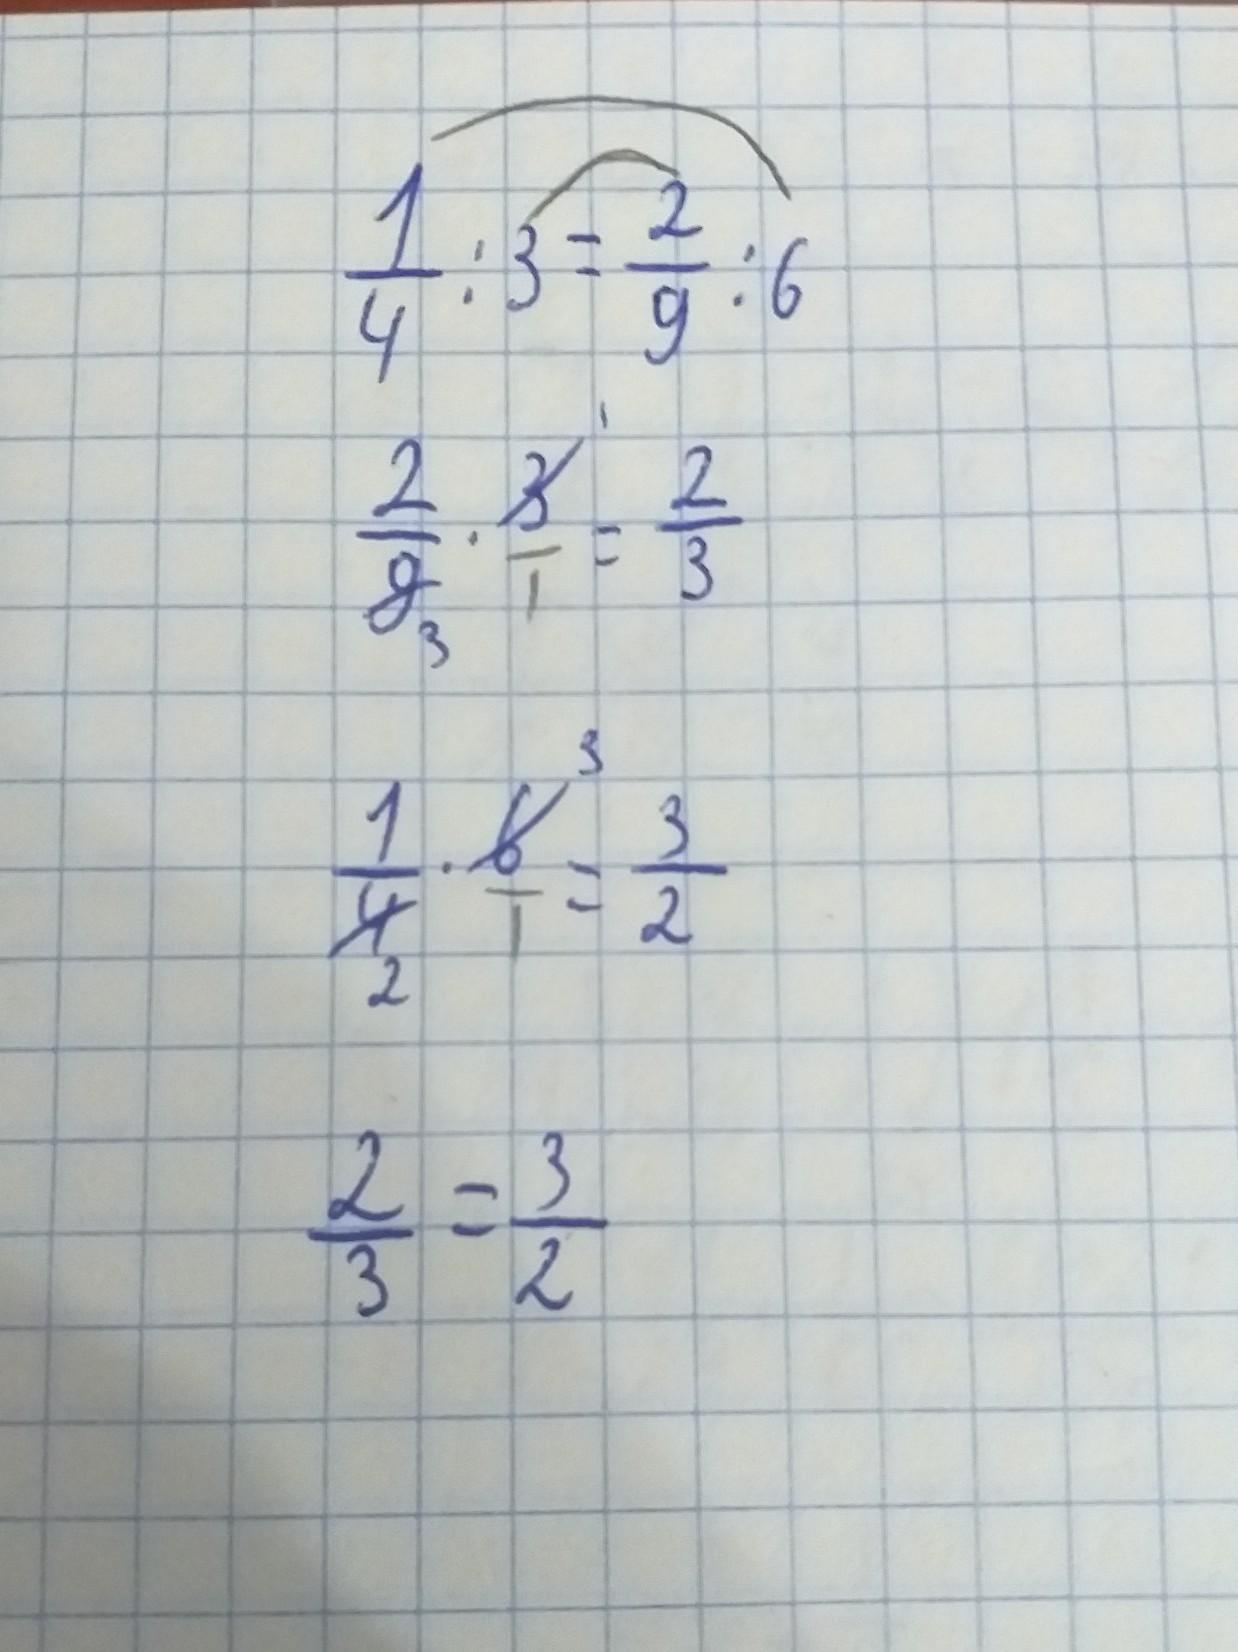 1/4 : 3 = 2/9 : 6
2/9 3 · 3/1 1 = 2/3
1/4 2 · 6/1 3 = 3/2
2/3 = 3/2